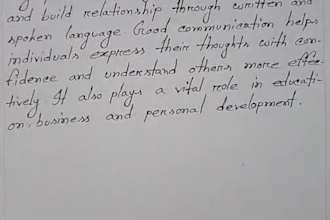 and build relationship through written and
spoken language. Good communication helps
individuals express their thoughts with con-
fidence and understand others more effec-
tively. It also plays a vital role in educati-
on, business and personal development.